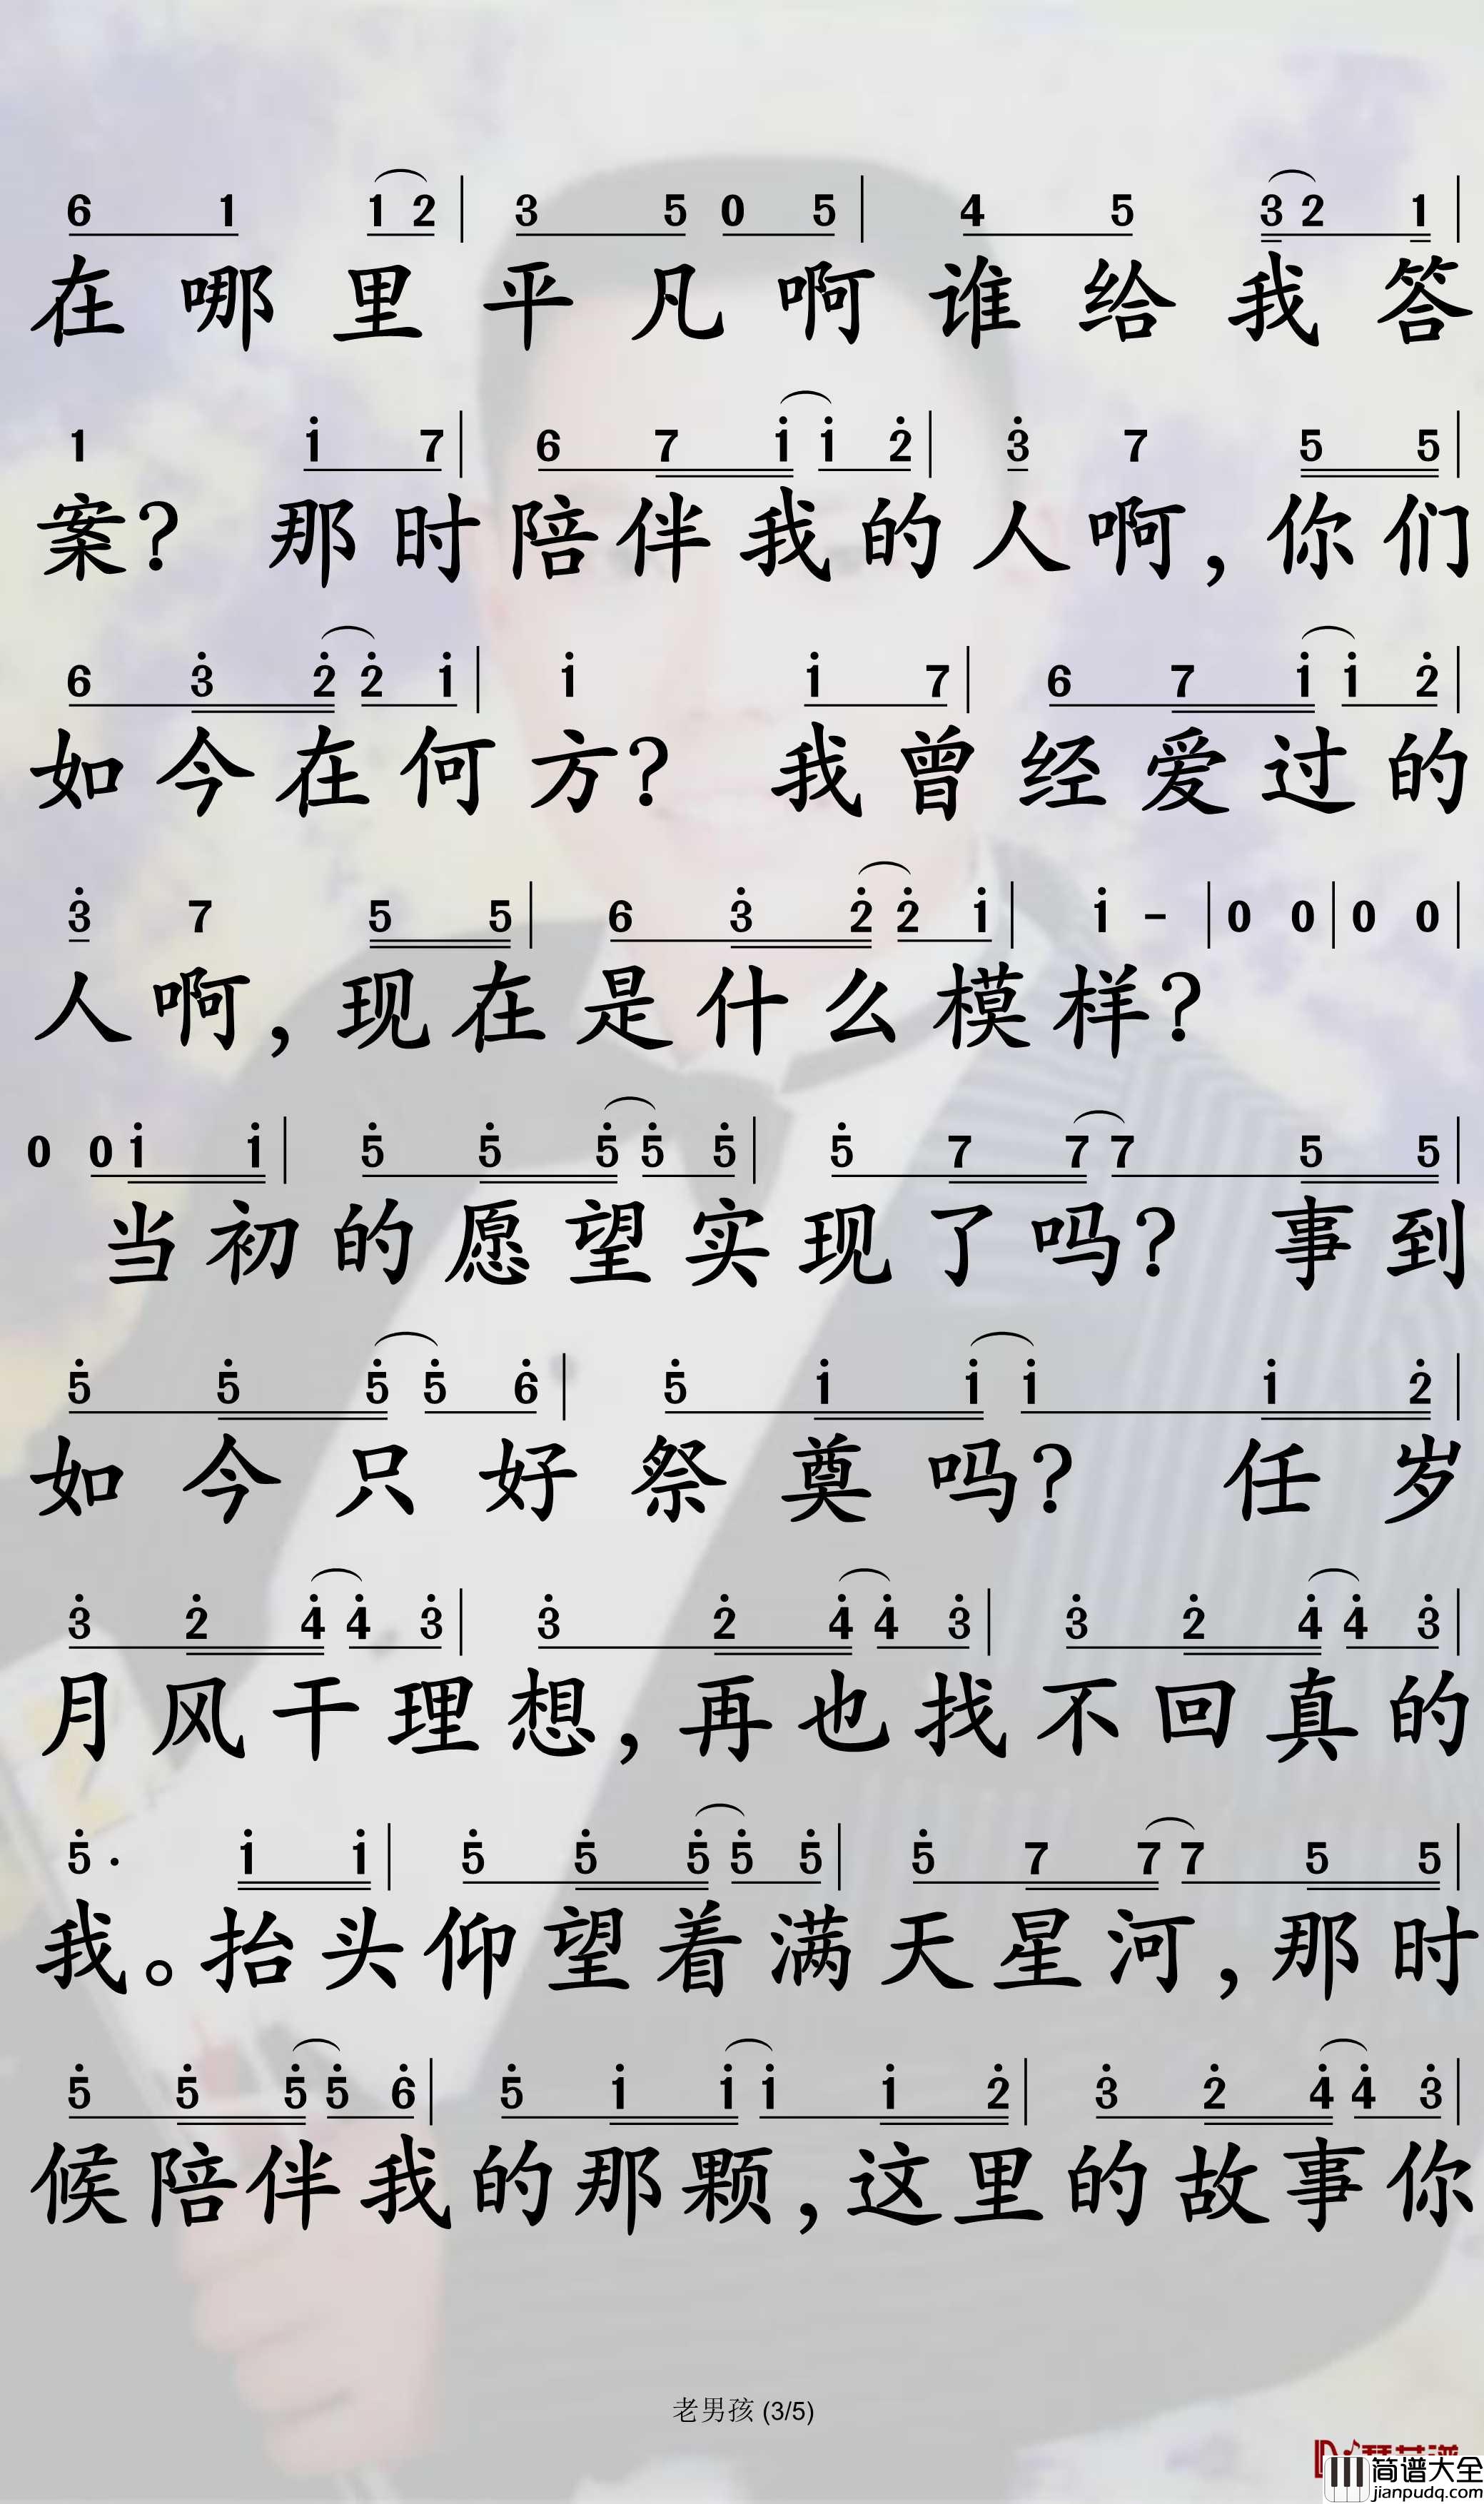 6 1 1 2 | 3 5 0 5 | 4 5 3 2 1 |
在哪里平凡啊谁给我答
1 i 7 | 6 7 i i 2̇ | 3̇ 7 5 5 |
案? 那时陪伴我的人啊,你们
6 3̇ 2̇ 2̇ i | i i 7 | 6 7 i i 2̇ |
如今在何方? 我曾经爱过的
3̇ 7 5 5 | 6 3̇ 2̇ 2̇ i | i - | 0 0 | 0 0 |
人啊,现在是什么模样?
0 0 i i | 5̇ 5̇ 5̇ 5̇ 5̇ | 5̇ 7 7 7 5 5 |
当初的愿望实现了吗? 事到
5̇ 5̇ 5̇ 5̇ 6̇ | 5̇ i i i i 2̇ |
如今只好祭奠吗? 任岁
3̇ 2̇ 4̇ 4̇ 3̇ | 3̇ 2̇ 4̇ 4̇ 3̇ | 3̇ 2̇ 4̇ 4̇ 3̇ |
月风干理想,再也找不回真的
5̇· i i | 5̇ 5̇ 5̇ 5̇ 5̇ | 5̇ 7 7 7 5 5 |
我。抬头仰望着满天星河,那时
5̇ 5̇ 5̇ 5̇ 6̇ | 5̇ i i i i 2̇ | 3̇ 2̇ 4̇ 4̇ 3̇ |
候陪伴我的那颗,这里的故事你
老男孩 (3/5)
简谱大全
jianpudq.com